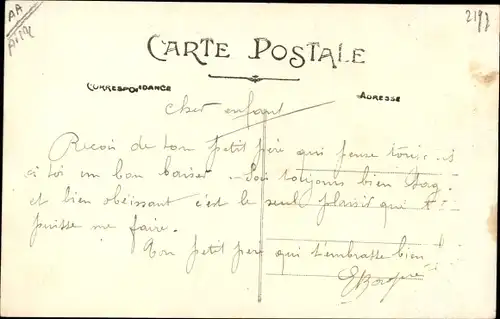 AA
2197
CARTE POSTALE
CORRESPONDANCE
ADRESSE
Cher enfant
Recois de ton petit père qui pense toujours
à toi un bon baiser. Sois toujours bien sage
et bien obéissant c'est le seul plaisir que tu
puisse me faire.
Ton petit père qui t'embrasse bien